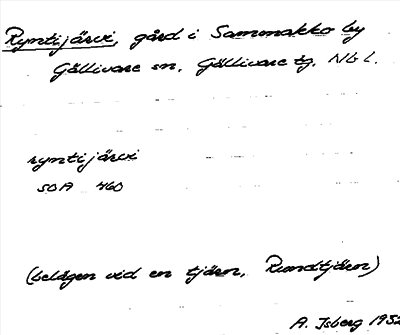 Ryntijärvi, gård i Sammakko by
Gällivare sn, Gällivare tg. Nb l.
ryntijärvi
SOA 460
(belägen vid en tjärn, Rundtjärn)
A. Isberg 1932